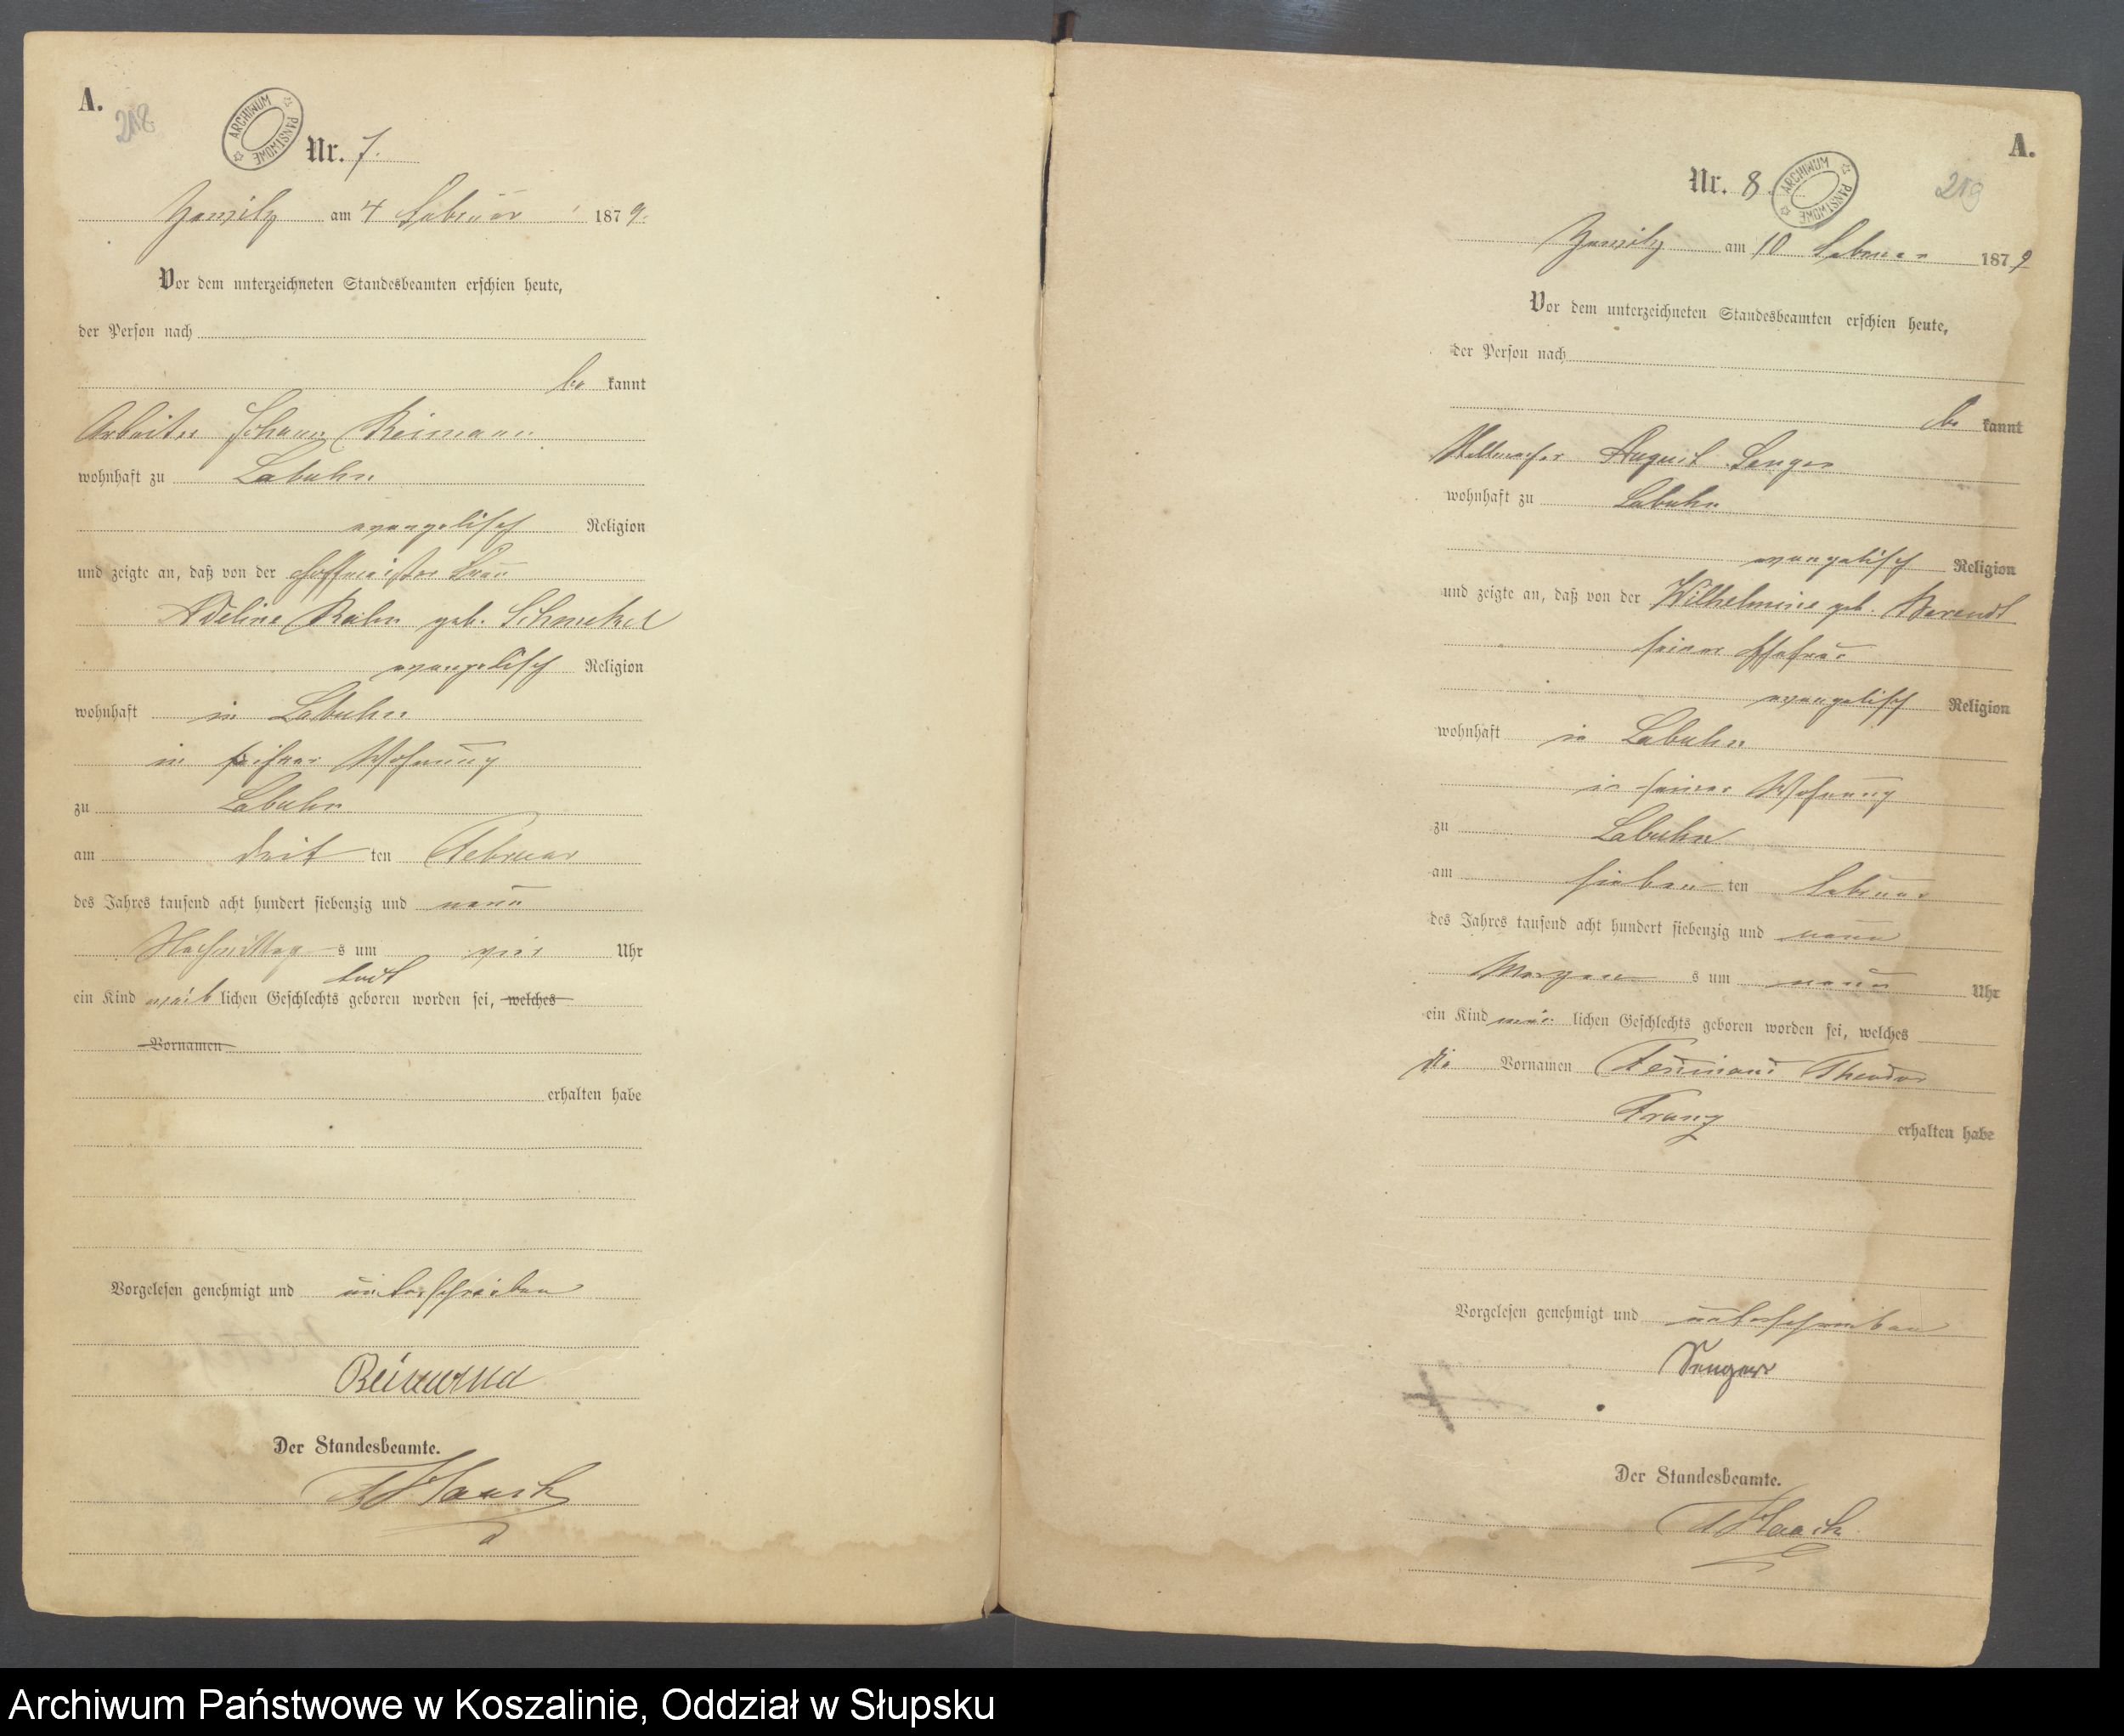 A.
218
ARCHIWUM PAŃSTWOWE
Nr. 7.
am 4 Februar 1879.
Vor dem unterzeichneten Standesbeamten erschien heute,
der Person nach
be kannt
Arbeiter Johann Reimann
wohnhaft zu Labuhn
evangelisch Religion
und zeigte an, daß von der Hoffmeister Frau
Adeline Rahn geb. Schmekel
evangelisch Religion
wohnhaft in Labuhn
in Wohnung
zu Labuhn
am drit ten Februar
des Jahres tausend acht hundert siebenzig und neun
Nachmittag s um vier Uhr
todt
ein Kind weib lichen Geschlechts geboren worden sei, welches
Vornamen
erhalten habe
Vorgelesen genehmigt und unterschrieben
Reimann
Der Standesbeamte.
A.
Nr. 8.
ARCHIWUM PAŃSTWOWE
219
am 10 Februar 1879
Vor dem unterzeichneten Standesbeamten erschien heute,
der Person nach
be kannt
Stellmacher August Senger
wohnhaft zu Labuhn
evangelisch Religion
und zeigte an, daß von der Wilhelmine geb. Berendt
seiner Ehefrau
evangelisch Religion
wohnhaft in Labuhn
in seiner Wohnung
zu Labuhn
am sieben ten Februar
des Jahres tausend acht hundert siebenzig und neun
Morgen s um neun Uhr
ein Kind män lichen Geschlechts geboren worden sei, welches
die Vornamen Ferdinand Theodor
Franz
erhalten habe
Vorgelesen genehmigt und unterschrieben
Senger
Der Standesbeamte.
Archiwum Państwowe w Koszalinie, Oddział w Słupsku